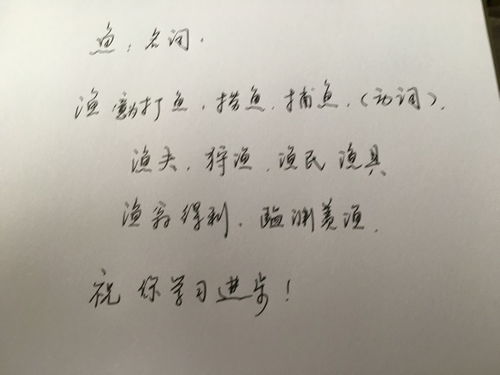 鱼:名词.
渔 動打鱼,捞鱼,捕鱼,(元词),
渔夫,狩渔,渔民 渔具
渔翁得利.临渊羡渔,
祝 你学习进步!